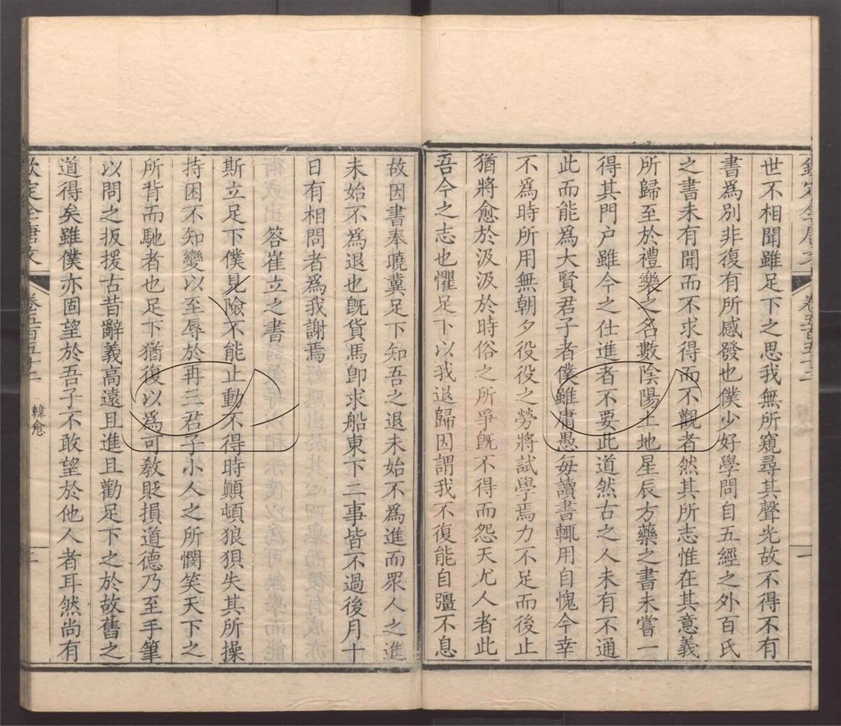 欽定全唐文 卷五百五十二
世不相聞雖足下之思我無所窺尋其聲光故不得不有
書為別非復有所感發也僕少好學問自五經之外百氏
之書未有聞而不求得而不觀者然其所志惟在其意義
所歸至於禮樂之名數陰陽土地星辰方藥之書未嘗一
得其門户雖今之仕進者不要此道然古之人未有不通
此而能為大賢君子者僕雖庸愚每讀書輒用自愧今幸
不為時所用無朝夕役役之勞將試學焉力不足而後止
猶將愈於汲汲於時俗之所爭旣不得而怨天尤人者此
吾今之志也懼足下以我退歸因謂我不復能自彊不息
故因書奉曉冀足下知吾之退未始不為進而眾人之進
未始不為退也旣貨馬卽求船東下二事皆不過後月十
日有相問者為我謝焉
答崔立之書
斯立足下僕見險不能止動不得時顛頓狼狽失其所操
持困不知變以至辱於再三君子小人之所憫笑天下之
所背而馳者也足下猶復以為可敎貶損道德乃至手筆
以問之扳援古昔辭義高遠且進且勸足下之於故舊之
道得矣雖僕亦固望於吾子不敢望於他人者耳然尚有
欽定全唐文 卷五百五十二 韓愈 二